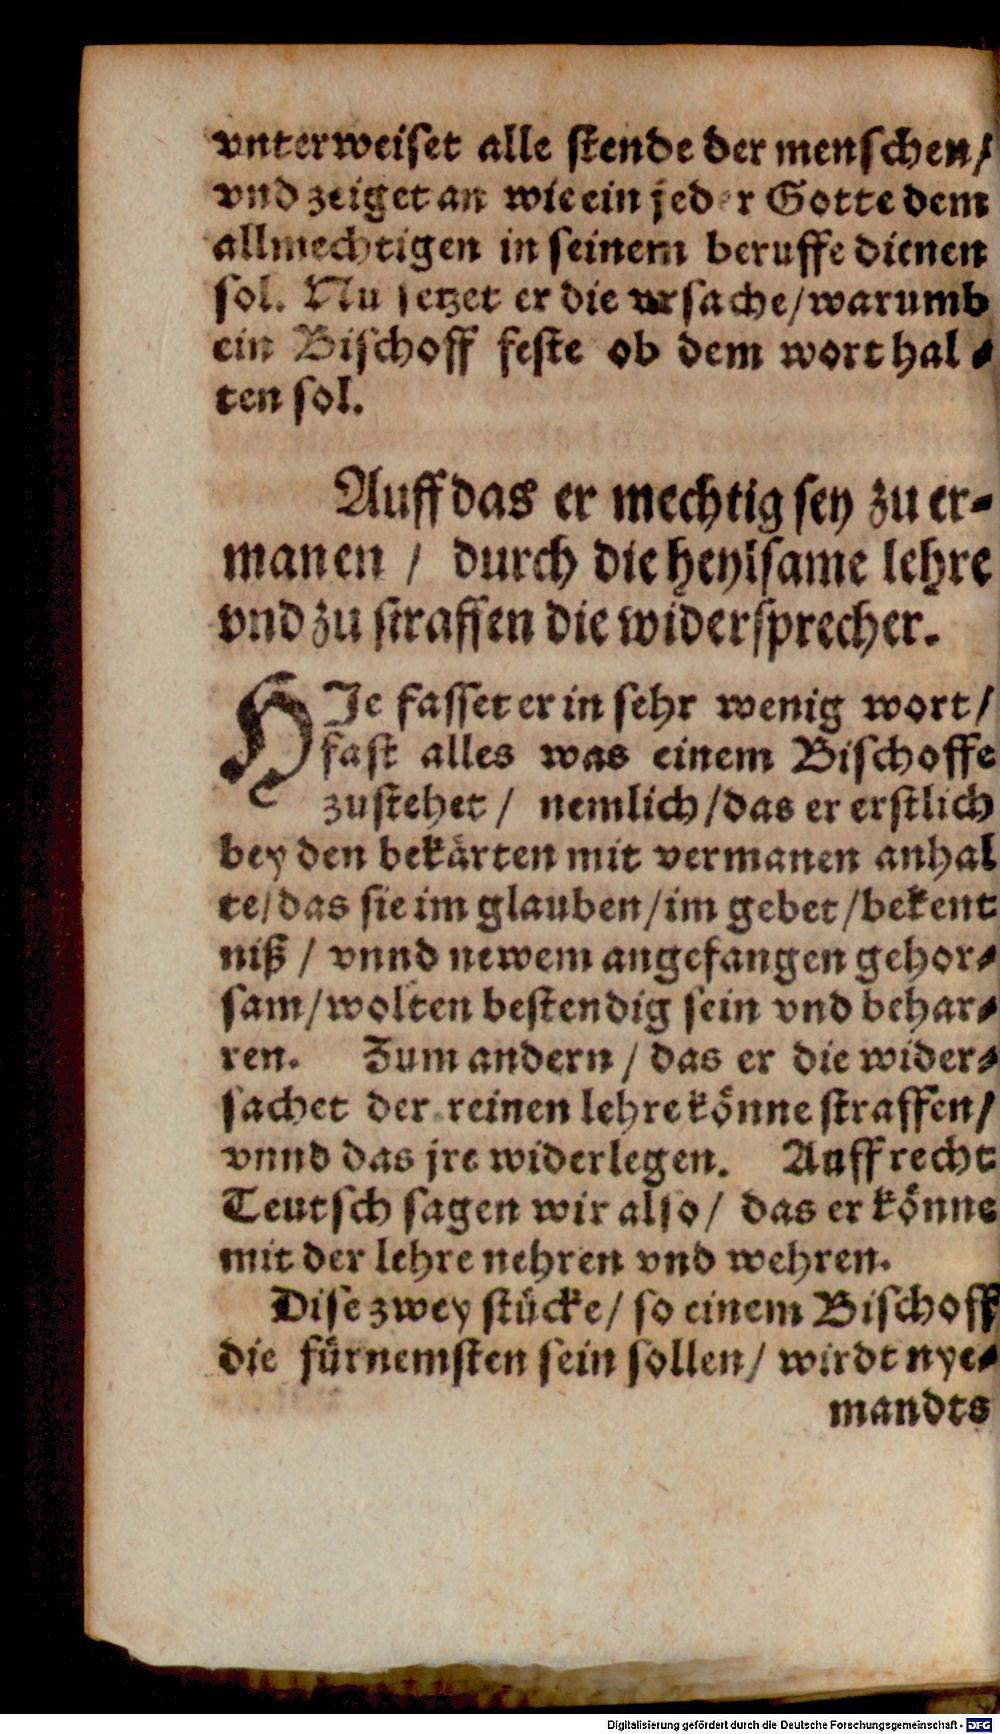 vnterweiset alle stende der menschen/
vnd zeiget an wie ein jeder Gotte dem
allmechtigen in seinem beruffe dienen
sol. Nu setzet er die vrsache/warumb
ein Bischoff feste ob dem wort hal-
ten sol.
Auff das er mechtig sey zu er-
manen / durch die heylsame lehre
vnd zu straffen die widersprecher.
HIe fasset er in sehr wenig wort/
fast alles was einem Bischoffe
zustehet / nemlich/das er erstlich
bey den bekärten mit vermanen anhal
te/das sie im glauben/im gebet/bekent
niß / vnnd newem angefangen gehor-
sam/wolten bestendig sein vnd behar-
ren. Zum andern / das er die wider-
sachet der reinen lehre könne straffen/
vnnd das jre widerlegen. Auff recht
Teutsch sagen wir also/ das er könne
mit der lehre nehren vnd wehren.
Dise zwey stücke/ so einem Bischoff
die fürnemsten sein sollen/ wirdt nye-
mandts
Digitalisierung gefördert durch die Deutsche Forschungsgemeinschaft - DFG